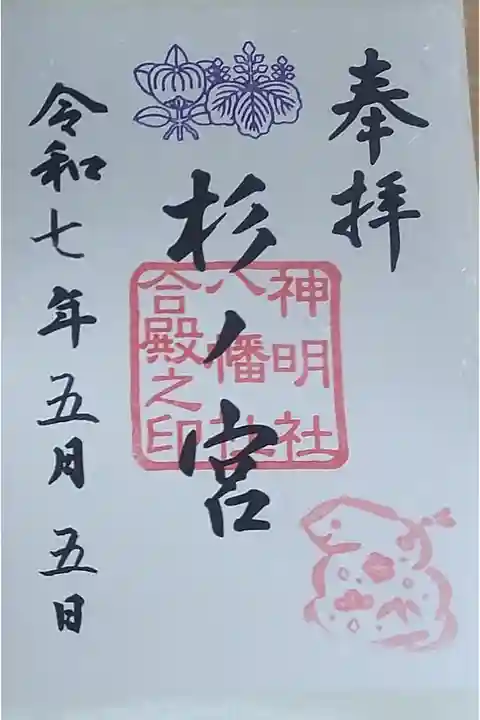 奉拝
杉ノ宮
神明社
八幡社
合殿之印
令和七年五月五日